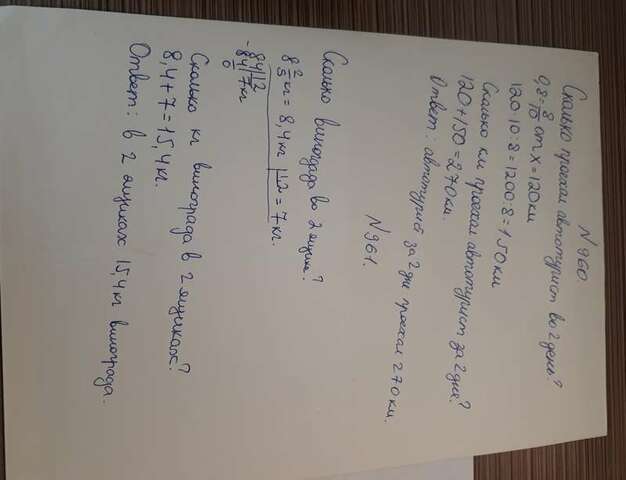 N 960.
Сколько проехал автотурист во 2 день?
0,8 = 8/10 от x = 120 км
120·10:8 = 1200:8 = 150 км
Сколько км проехал автотурист за 2 дня?
120+150 = 270 км.
Ответ: автотурист за 2 дня проехал 270 км.
N 961.
Сколько винограда во 2 ящике?
8 2/5 кг = 8,4 кг | 1,2 = 7 кг.
-84|12
84|7кг
0
Сколько кг винограда в 2 ящиках?
8,4+7=15,4 кг.
Ответ: в 2 ящиках 15,4 кг винограда.